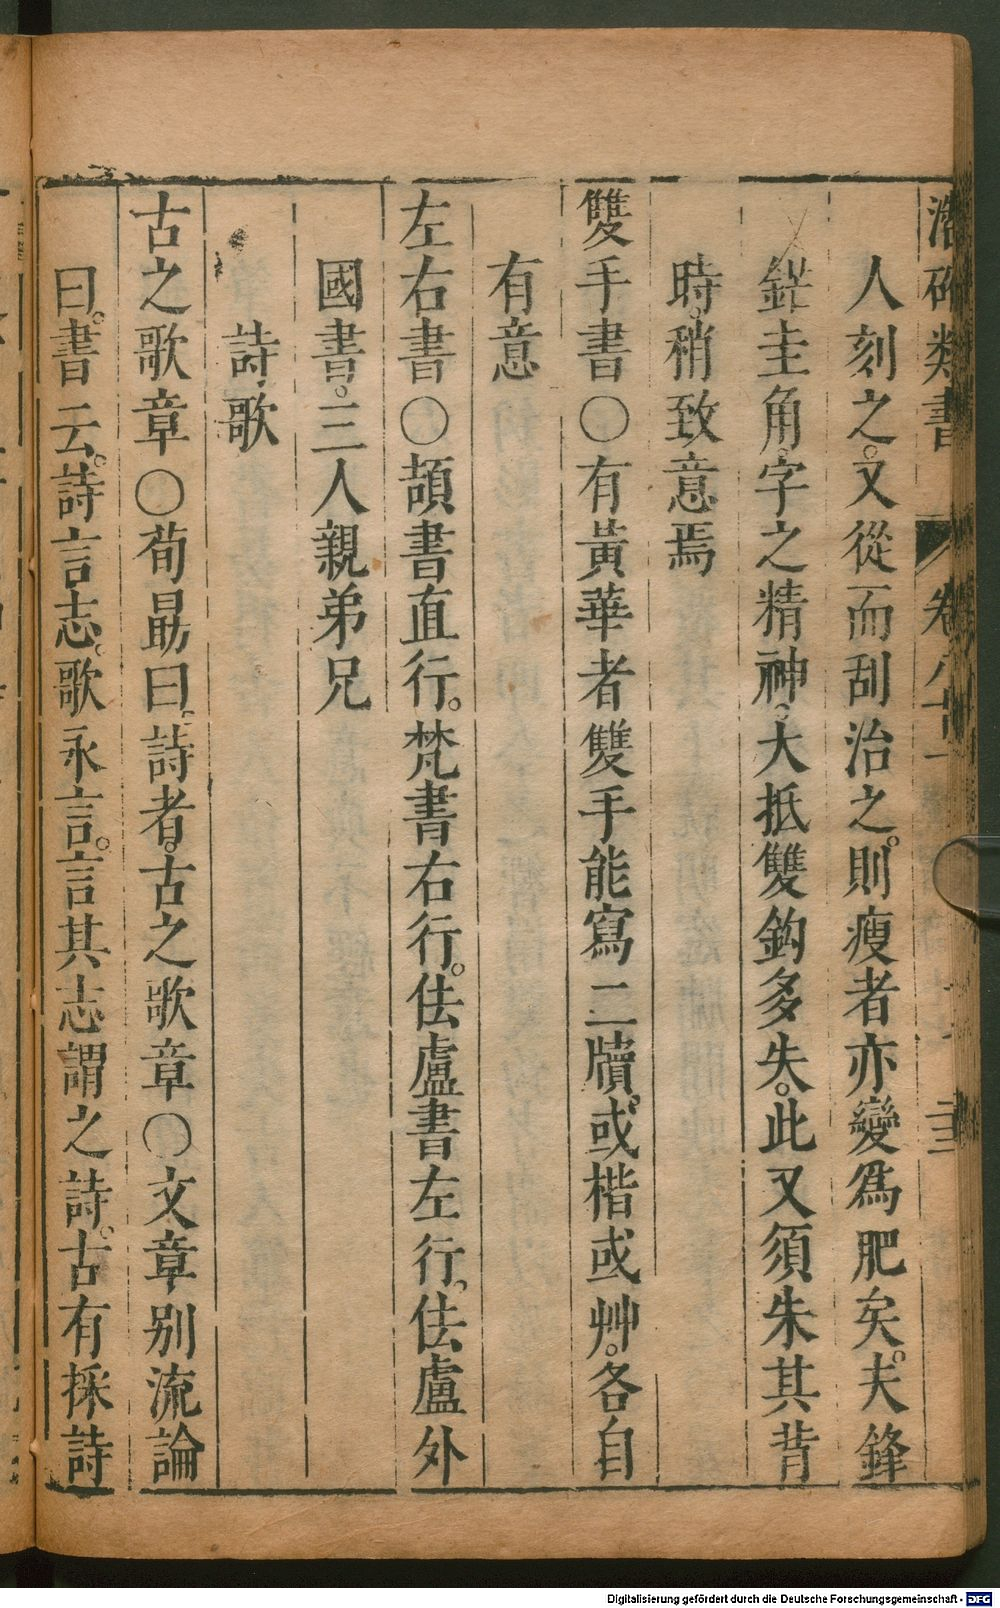 類書 卷八十一 二十三
人刻之。又從而刮治之。則瘦者亦變爲肥矣。夫鋒
鋩圭角。字之精神。大抵雙鈎多失。此又須朱其背
時。稍致意焉
雙手書〇有黃華者雙手能寫二牘。或楷或艸。各自
有意
左右書〇頡書直行。梵書右行。佉盧書左行。佉盧外
國書。三人親弟兄
詩歌
古之歌章〇荀勗曰。詩者。古之歌章〇文章別流論
曰。書云。詩言志。歌永言。言其志謂之詩。古有採詩
Digitalisierung gefördert durch die Deutsche Forschungsgemeinschaft - DFG